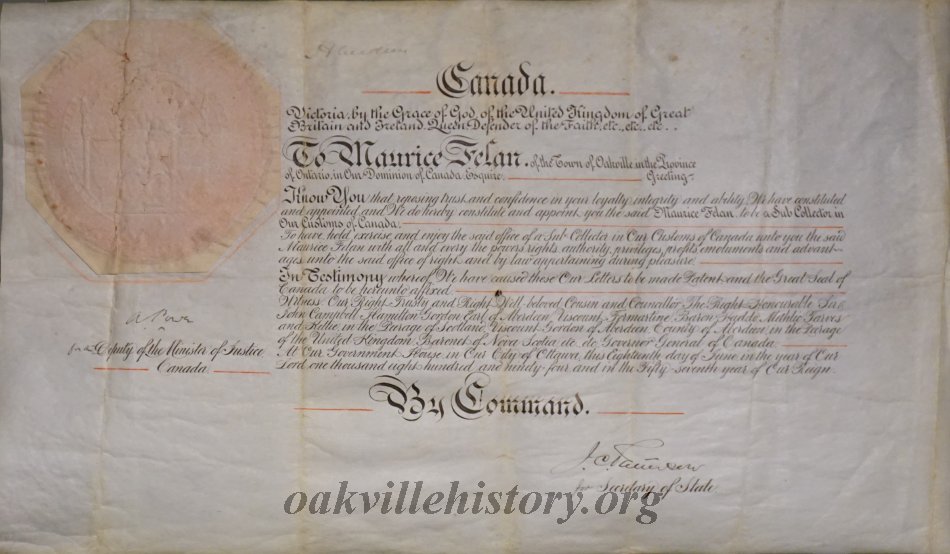 Aberdeen
Canada.
Victoria, by the Grace of God, of the United Kingdom of Great
Britain and Ireland, Queen, Defender of the Faith, etc., etc., etc..
To Maurice Felan. of the Town of Oakville, in the Province
of Ontario, in Our Dominion of Canada, Esquire, Greeting-
Know You that reposing trust and confidence in your loyalty, integrity and ability, We have constituted
and appointed, and We do hereby constitute and appoint, you the said Maurice Felan, to be a Sub Collector in
Our Customs of Canada.
To have, hold, exercise and enjoy the said office of a Sub-Collector in Our Customs of Canada unto you the said
Maurice Felan with all and every the powers, rights, authority, privileges, profits, emoluments and advant-
ages unto the said office of right and by law appertaining during pleasure.
In Testimony whereof, We have caused these Our Letters to be made Patent, and the Great Seal of
Canada to be hereunto affixed.
Witness, Our Right Trusty and Right Well-beloved Cousin and Councillor The Right Honourable Sir
John Campbell Hamilton-Gordon, Earl of Aberdeen, Viscount Formartine, Baron Methlic, Tarves
and Kellie, in the Peerage of Scotland, Viscount Gordon of Aberdeen, County of Aberdeen, in the Peerage
of the United Kingdom, Baronet of Nova Scotia, etc. etc. Governor General of Canada.
At Our Government House, in Our City of Ottawa, this Eighteenth day of June in the year of Our
Lord, one thousand eight hundred and ninety-four and in the Fifty-seventh year of Our Reign.
A. Power
for the Deputy of the Minister of Justice
Canada.
By Command.
for Secretary of State.
oakvillehistory.org